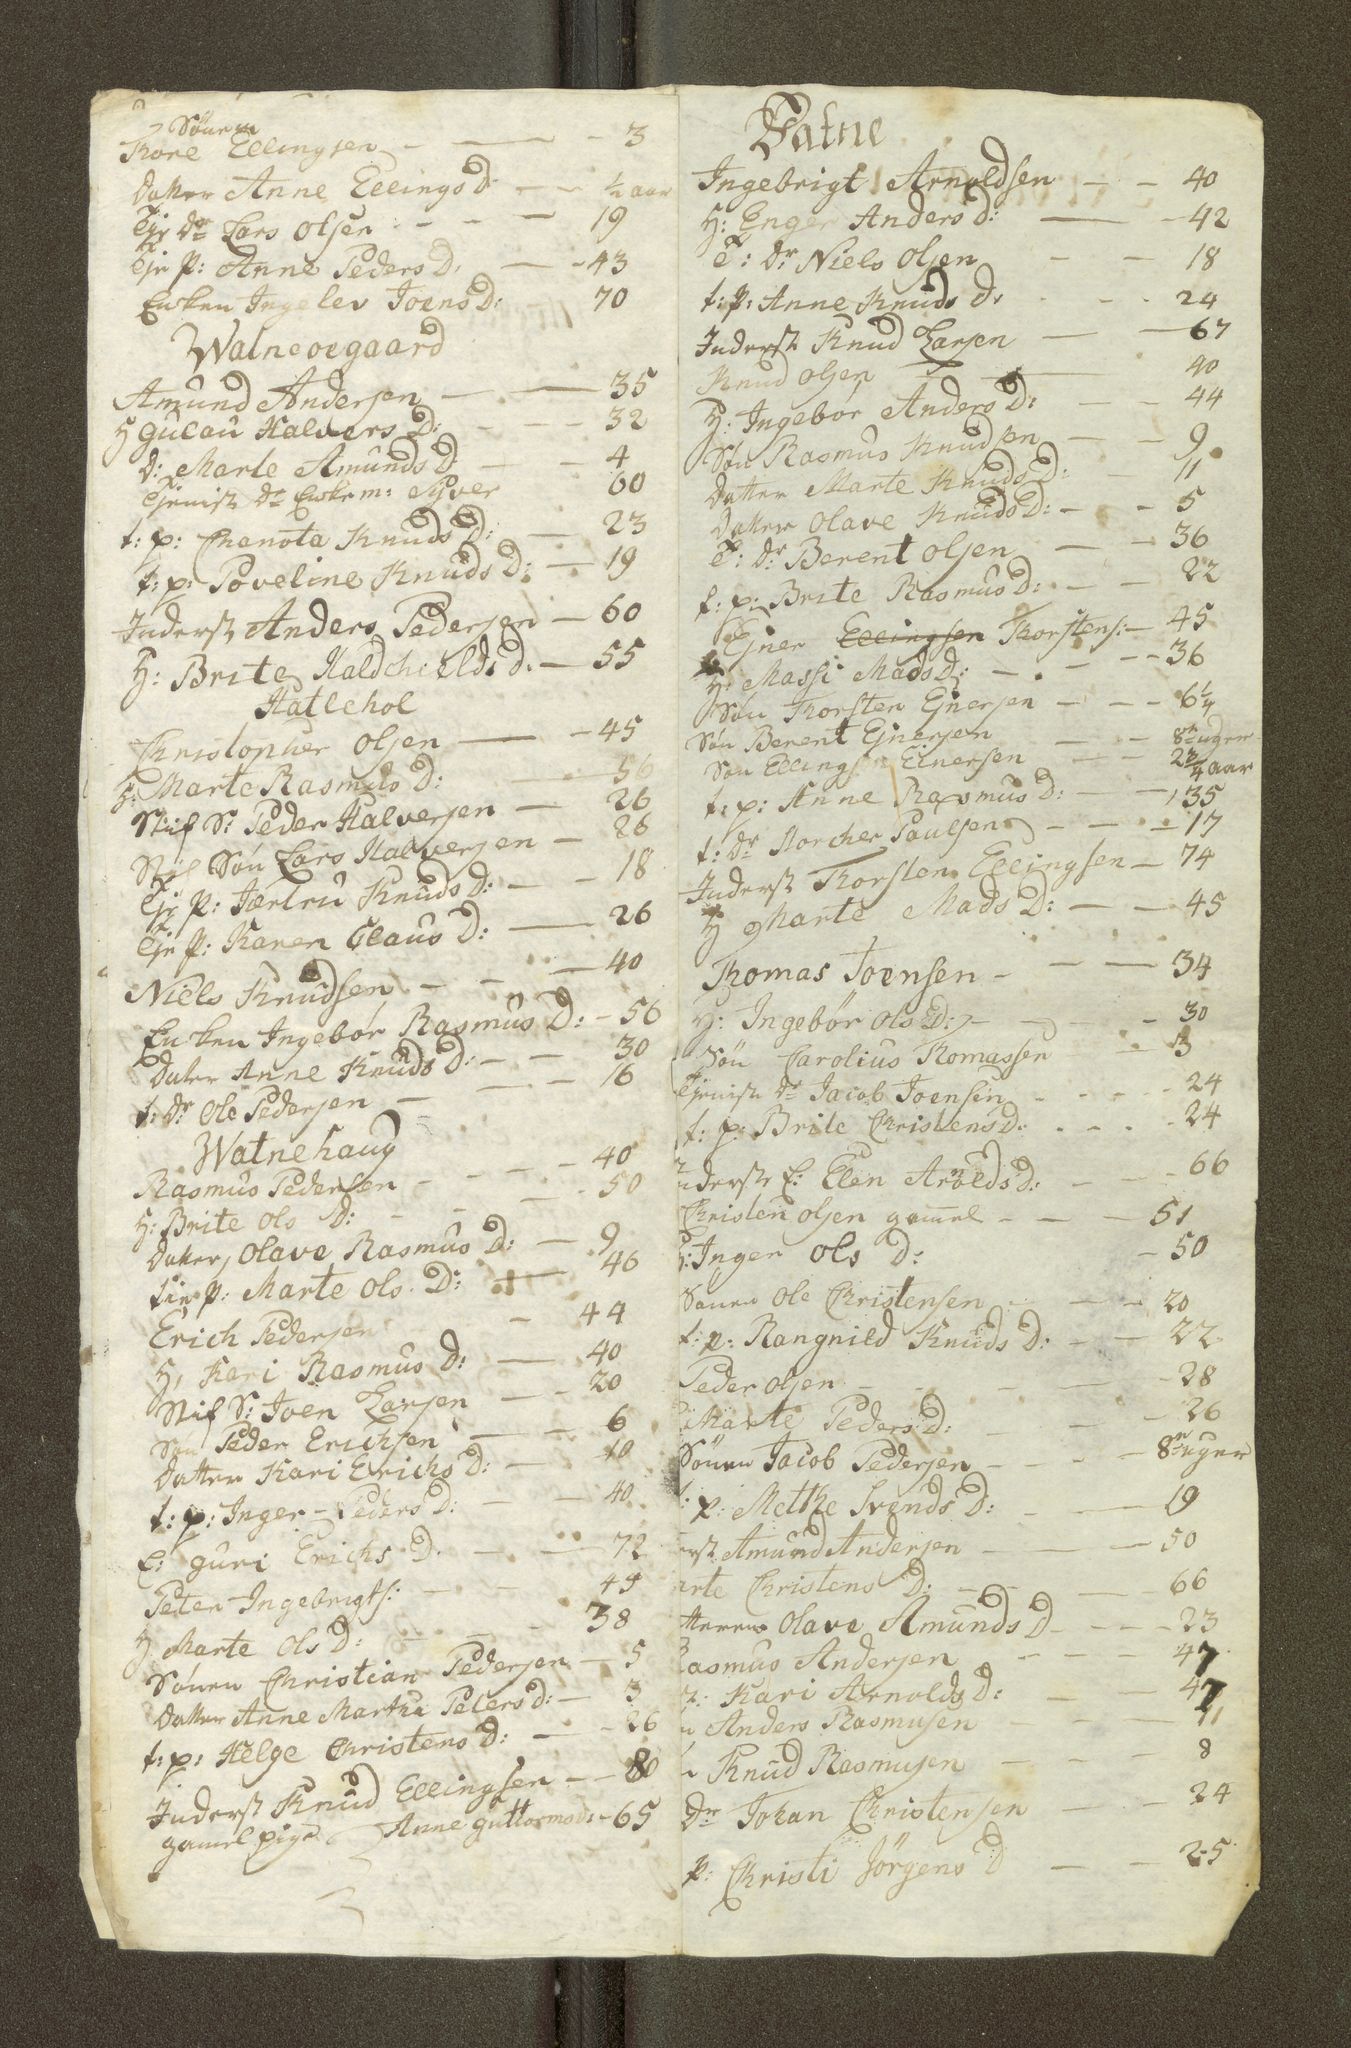 Sönen
Tkore Ellingsen - 3
Datter Anne Ellings D: - 1/2 aar
Tje Dr Lars Olsen - 19
Tje p: Anne Peders D: - 43
Enken Ingelev Joens D: - 70
Watneoegaard
Amund Andersen - 35
H Gulau Halvers D: - 32
D: Marte Amunds D - 4
Tienist Dr Enke m: Syver 60
t: p: Chanota Knuds D: - 23
t: p: Poveline Knuds D: - 19
Inderst Anders Pedersen - 60
H: Brite Haldchields D. - 55
Hatlehol
Christopher Olsen - 45
H: Marte Rasmus D: - 56
Stif S: Peder Halversen - 26
Stif Sön Lars Halversen - 26
Tje p: Jertru Knuds D: - 18
Tje p: Karen Claus D: - 26
Niels Knudsen - 40
Enken Ingebor Rasmus D: - 56
Dater Anne Knuds D: - 30
t: Dr Ole Pedersen - 16
Watnehaug
Rasmus Pedersen - 40
H: Brite Ols D: - 50
Datter Olave Rasmus D: - 9
tie p: Marte Ols D: - 46
Erich Pedersen - 44
H, Kari Rasmus D: - 40
Stif S: Joen Larsen - 20
Sön Peder Erichsen - 6
Datter Kari Erichs D: - 10
t: p: Inger Peders D: - 40
E: guri Erichs D. - 72
Peter Ingebrigts: - 49
H Marte Ols D: - 38
Sönen Christian Pedersen - 5
Datter Anne Martha Peters D: - 3
t: p: Helge Christens D: - 26
Inderst Knud Ellingsen - 80
gamel pige Anne guttormsd: - 65
Vatne
Ingebrigt Arnoldsen - 40
H: Enger Anders D: - 42
T: Dr Niels Olsen - 18
t: p: Anne Knuds D: - 24
Inderst Knud Larsen - 67
Knud Olsen - 40
H: Ingebor Anders D: - 44
Sön Rasmus Knudsen - 9
Datter Marte Knuds D: - 11
Datter Olave Knuds D: - 5
T: Dr: Berent Olsen - 36
t: p: Brite Rasmus D: - 22
Ejner Ellingsen Thorstens: - 45
H: Massi Mads D: - 36
Sön Thorsten Ejnersen - 6 1/4
Sön Berent Ejnersen - 8te uger
Sön Ellingsen Einersen - 2 3/4 aar
t: p: Anne Rasmus D: - 35
t: Dr Norcher Paulsen - 17
Inderst Thorsten Ellingsen - 74
H Marte Mads D: - 45
Thomas Joensen - 34
H: Ingebör Ols D: - 30
Sön Carolius Thomassen - 3
Tjenist Dr Jacob Joensen - 24
t: p: Brite Christens D: - 24
nderste E: Elen Arolds D: - 66
Christen Olsen gamel - 51
H: Inger Ols D: - 50
Sönen Ole Christensen - 20
t: p: Rangnild Knuds D: - 22
Peder Olsen - 28
Marte Peders D: - 26
Sönen Jacob Pedersen - 8te uger
t: p: Metke Svends D: - 19
erst Amund Andersen - 50
arte Christens D: - 66
tteren Olave Amunds D - 23
Rasmus Andersen - 47
H: Kari Arnolds D: - 47
n Anders Rasmusen - 11
n Knud Rasmusen - 8
Dr Johan Christensen - 24
p: Christi Jörgens D - 25